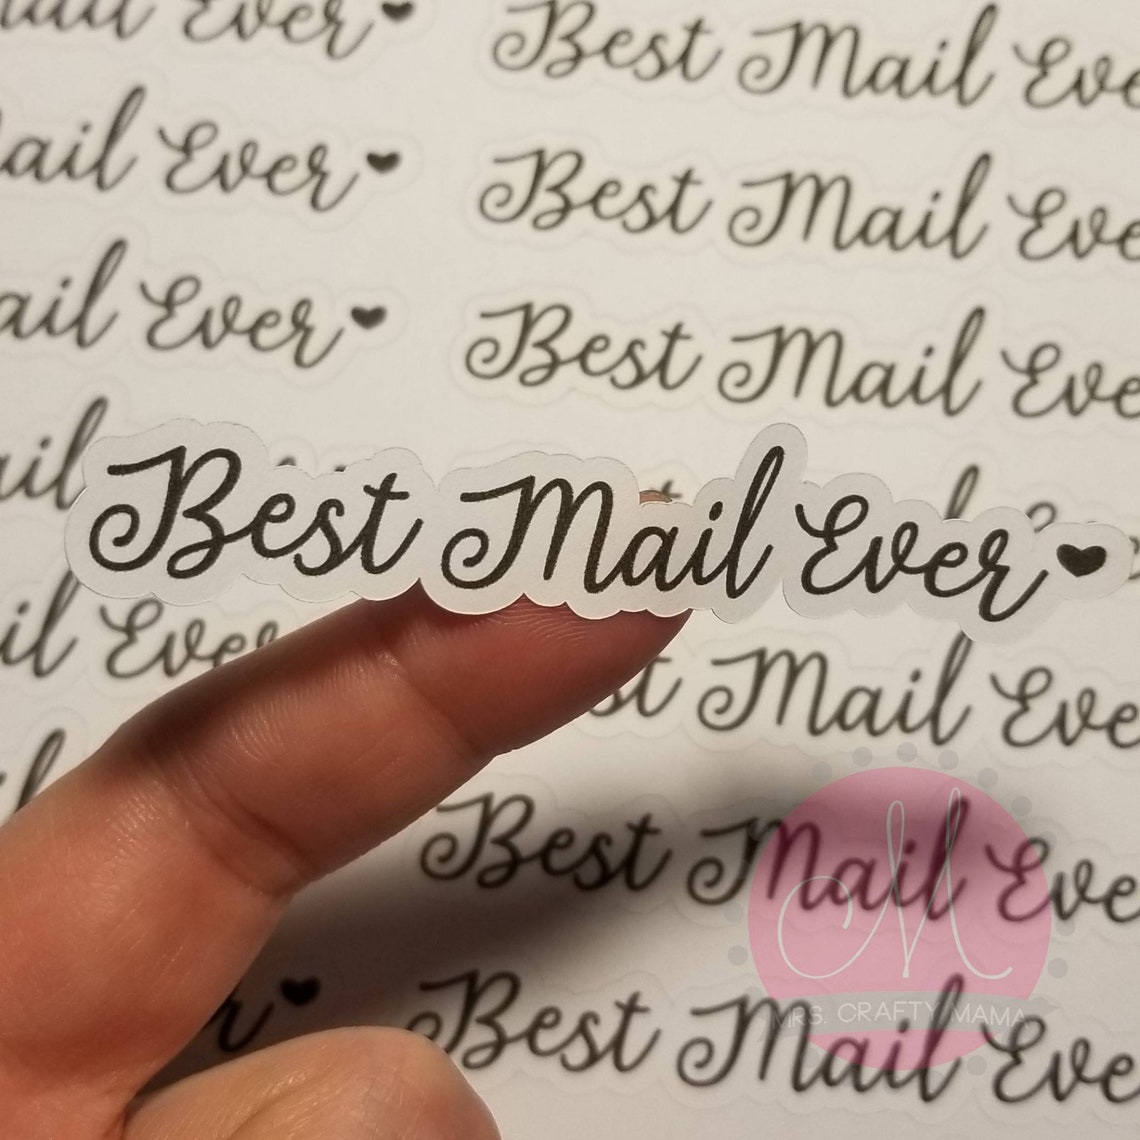 Mail Ever
Best Mail Eve
Mail Ever
Best Mail Eve
ail Ever
Best Mail Eve
ail
Best Mail Ever
il Eve
st Mail Eve
Best Mail Eve
Best Mail Eve
M
MRS. CRAFTY MAMA